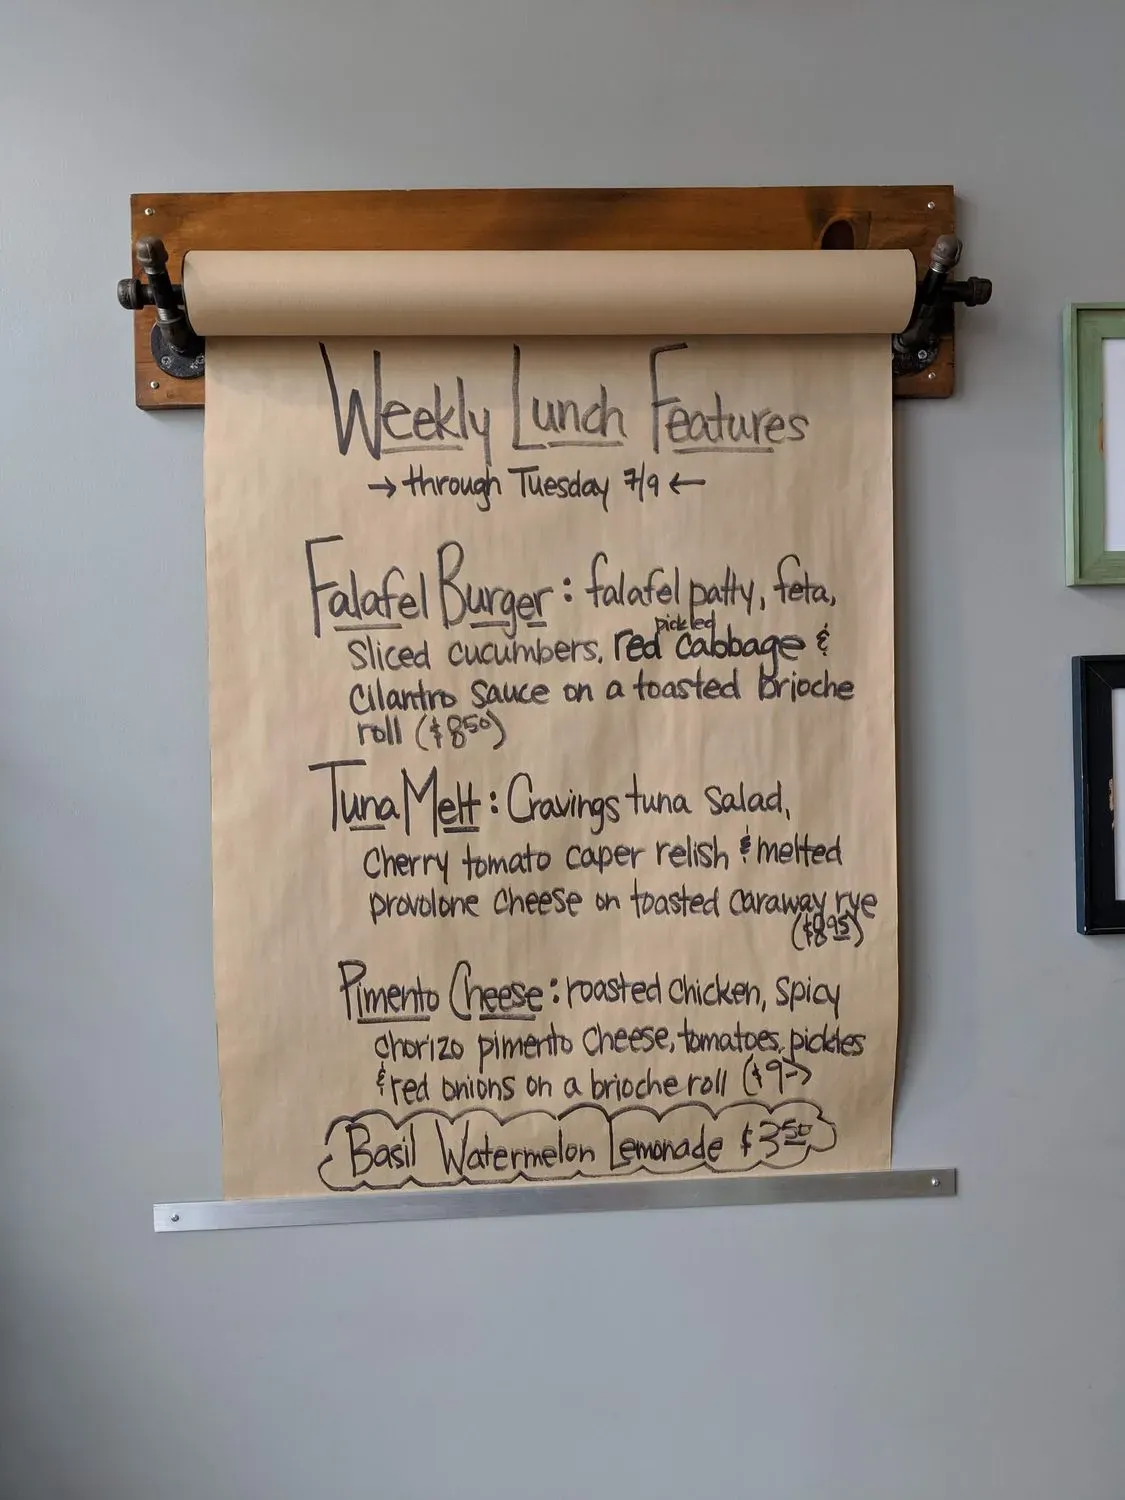 Weekly Lunch Features
→ through Tuesday 7/9 ←
Falafel Burger: falafel patty, feta,
pickled
sliced cucumbers, red cabbage &
cilantro sauce on a toasted brioche
roll ($8.50)
Tuna Melt: Cravings tuna salad,
cherry tomato caper relish & melted
provolone cheese on toasted caraway rye
($8.95)
Pimento Cheese: roasted chicken, spicy
chorizo pimento cheese, tomatoes, pickles
& red onions on a brioche roll ($9-)
Basil Watermelon Lemonade $3.50